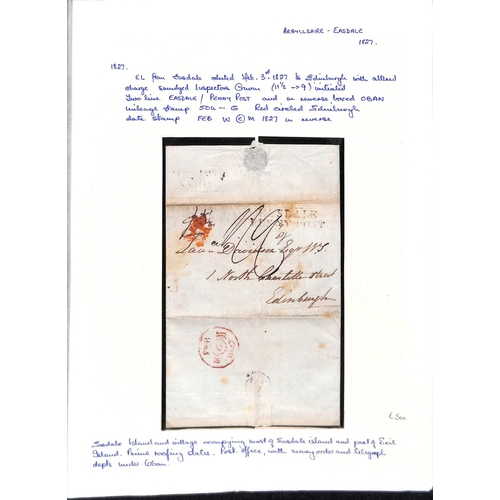 ARGYLLSHIRE - EASDALE
1827.
1827.
EL from Easdale dated Feb. 3rd 1827 to Edinburgh with altered
charge smudged Inspectors Crown (11½ → 9) initialed
Two line EASDALE / PENNY POST and on reverse boxed OBAN
mileage stamp 504 - G Red circled Edinburgh
date stamp FEB W © M 1827 on reverse
DALE
Y POST
Davidson Esqr W.S.
1 North Charlotte Street
Edinburgh
Easdale Island and village occupying most of Easdale island and part of Seil
Island. Prime roofing slates. Post office, with money order and telegraph
depts under Oban.